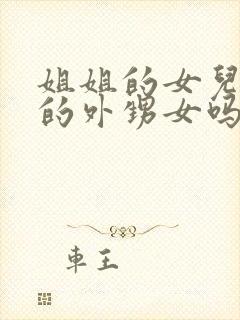 姐姐的女兒
的外甥女吗
車王